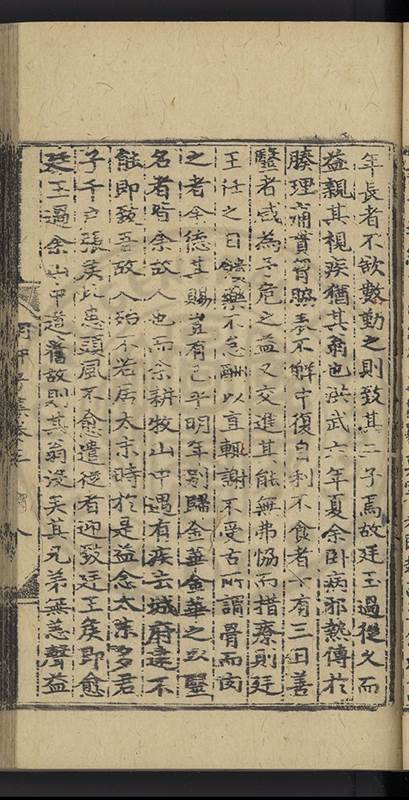 年長者不欲數勤之則致其二子焉故廷玉過從久而
益親其視疾猶其翁也洪武六年夏余臥病邪熱傳於
腠理痛貫膂腸表不解中復自利不食者十有三日善
醫者咸為予危之益又交進其能無弗恊而措療則廷
玉任之日饋藥不怠酬以直輒謝不受古所謂骨而肉
之者余德其賜豈有已乎明年別歸金華金華之以醫
名者皆余故人也而余耕牧山中遇有疾去城府遠不
能即致吾故人殆不若居太末時於是益念太末多君
子千戶張矦此患頭風不愈遣從者迎致廷玉矦即愈
廷玉過余山中道舊故則其翁沒矣其兄弟無恙聲益